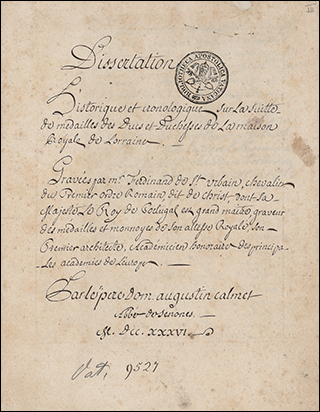 III
Dissertation
BIBLIOTHECA APOSTOLICA VATICANA
Historique et cronologique sur La suitte
de medailles des Ducs et Duchesses de La maison
Royale de Lorraine
Gravées par mr. Ferdinand de St. urbain, chevalier
du Premier ordre Romain, dit de Christ, dont sa
Majesté Le Roy de Portugal est grand maitre, graveur
des medailles et monnoyes de son altesse Royale, son
Premier architecte, Academicien honoraire des principa-
les academies de L'europe
Par le pere dom. augustin calmet
Abbé de senones
M. DCC. XXXVI.
Vat. 9527